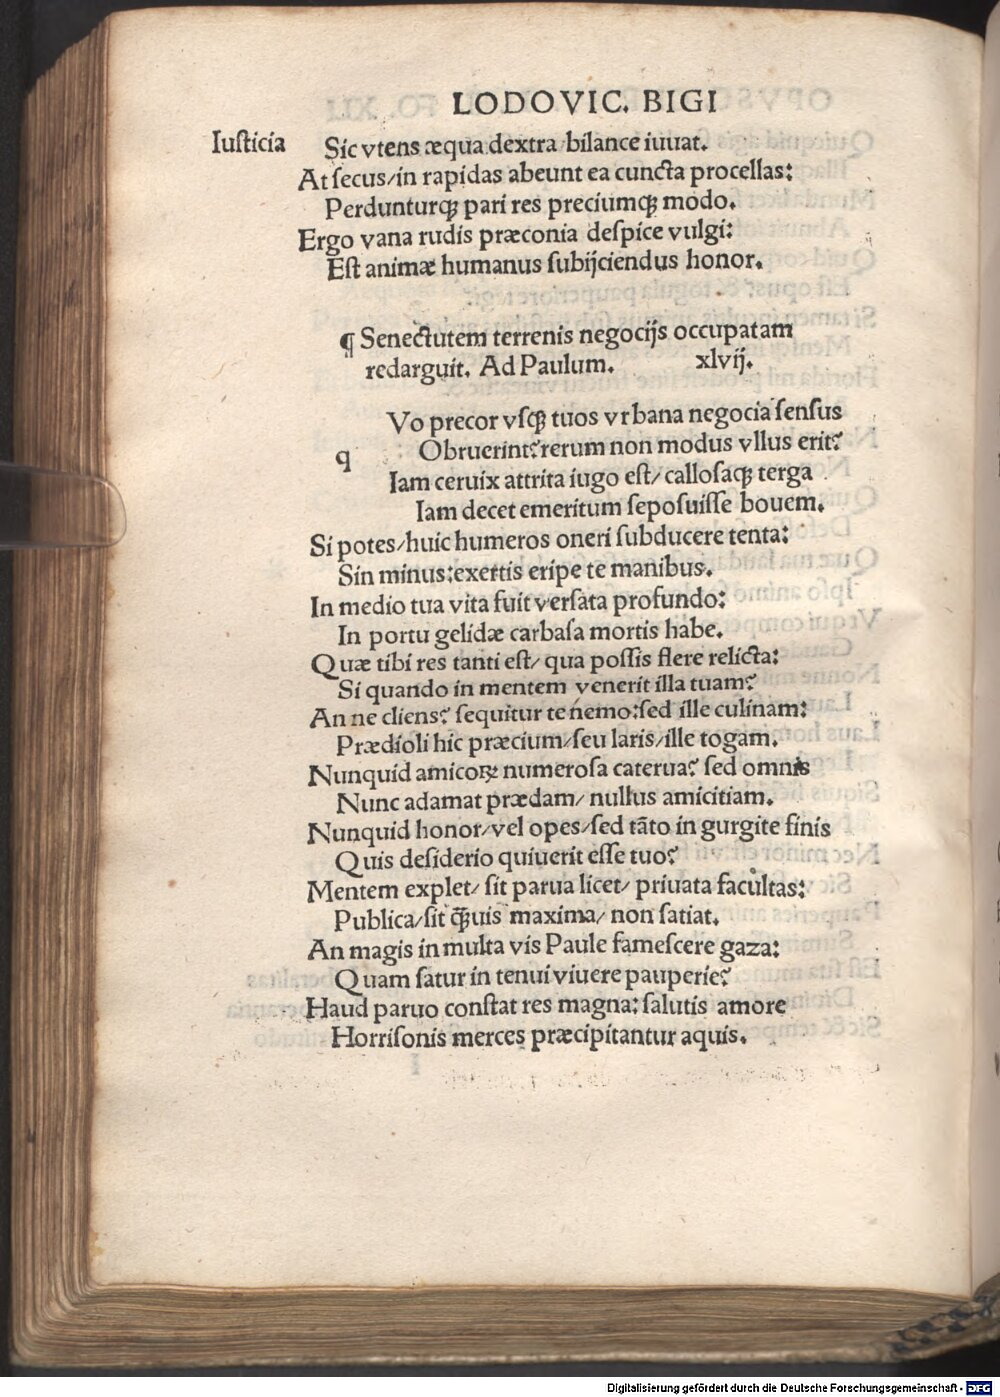 LODOVIC. BIGI
Iusticia
Sic vtens æqua dextra bilance iuuat.
At secus/in rapidas abeunt ea cuncta procellas:
Perdunturqꝫ pari res preciumqꝫ modo.
Ergo vana rudis præconia despice vulgi:
Est animæ humanus subijciendus honor.
¶ Senectutem terrenis negocijs occupatam
redarguit. Ad Paulum. xlvij.
q
Vo precor vsqꝫ tuos vrbana negocia sensus
Obruerint? rerum non modus vllus erit?
Iam ceruix attrita iugo est/ callosaqꝫ terga
Iam decet emeritum seposuisse bouem.
Si potes/huic humeros oneri subducere tenta:
Sin minus:exertis eripe te manibus.
In medio tua vita fuit versata profundo:
In portu gelidæ carbasa mortis habe.
Quæ tibi res tanti est/ qua possis flere relicta:
Si quando in mentem venerit illa tuam?
An ne cliens? sequitur te nemo:sed ille culinam:
Prædioli hic præcium/seu laris/ille togam.
Nunquid amicoꝝ numerosa caterua? sed omnis
Nunc adamat prædam/ nullus amicitiam.
Nunquid honor/vel opes/sed tāto in gurgite finis
Quis desiderio quiuerit esse tuo?
Mentem explet/ sit parua licet/ priuata facultas:
Publica/sit ꝙ̃uis maxima/ non satiat.
An magis in multa vis Paule famescere gaza:
Quam satur in tenui viuere pauperie?
Haud paruo constat res magna: salutis amore
Horrisonis merces præcipitantur aquis.
Digitalisierung gefördert durch die Deutsche Forschungsgemeinschaft - DFG